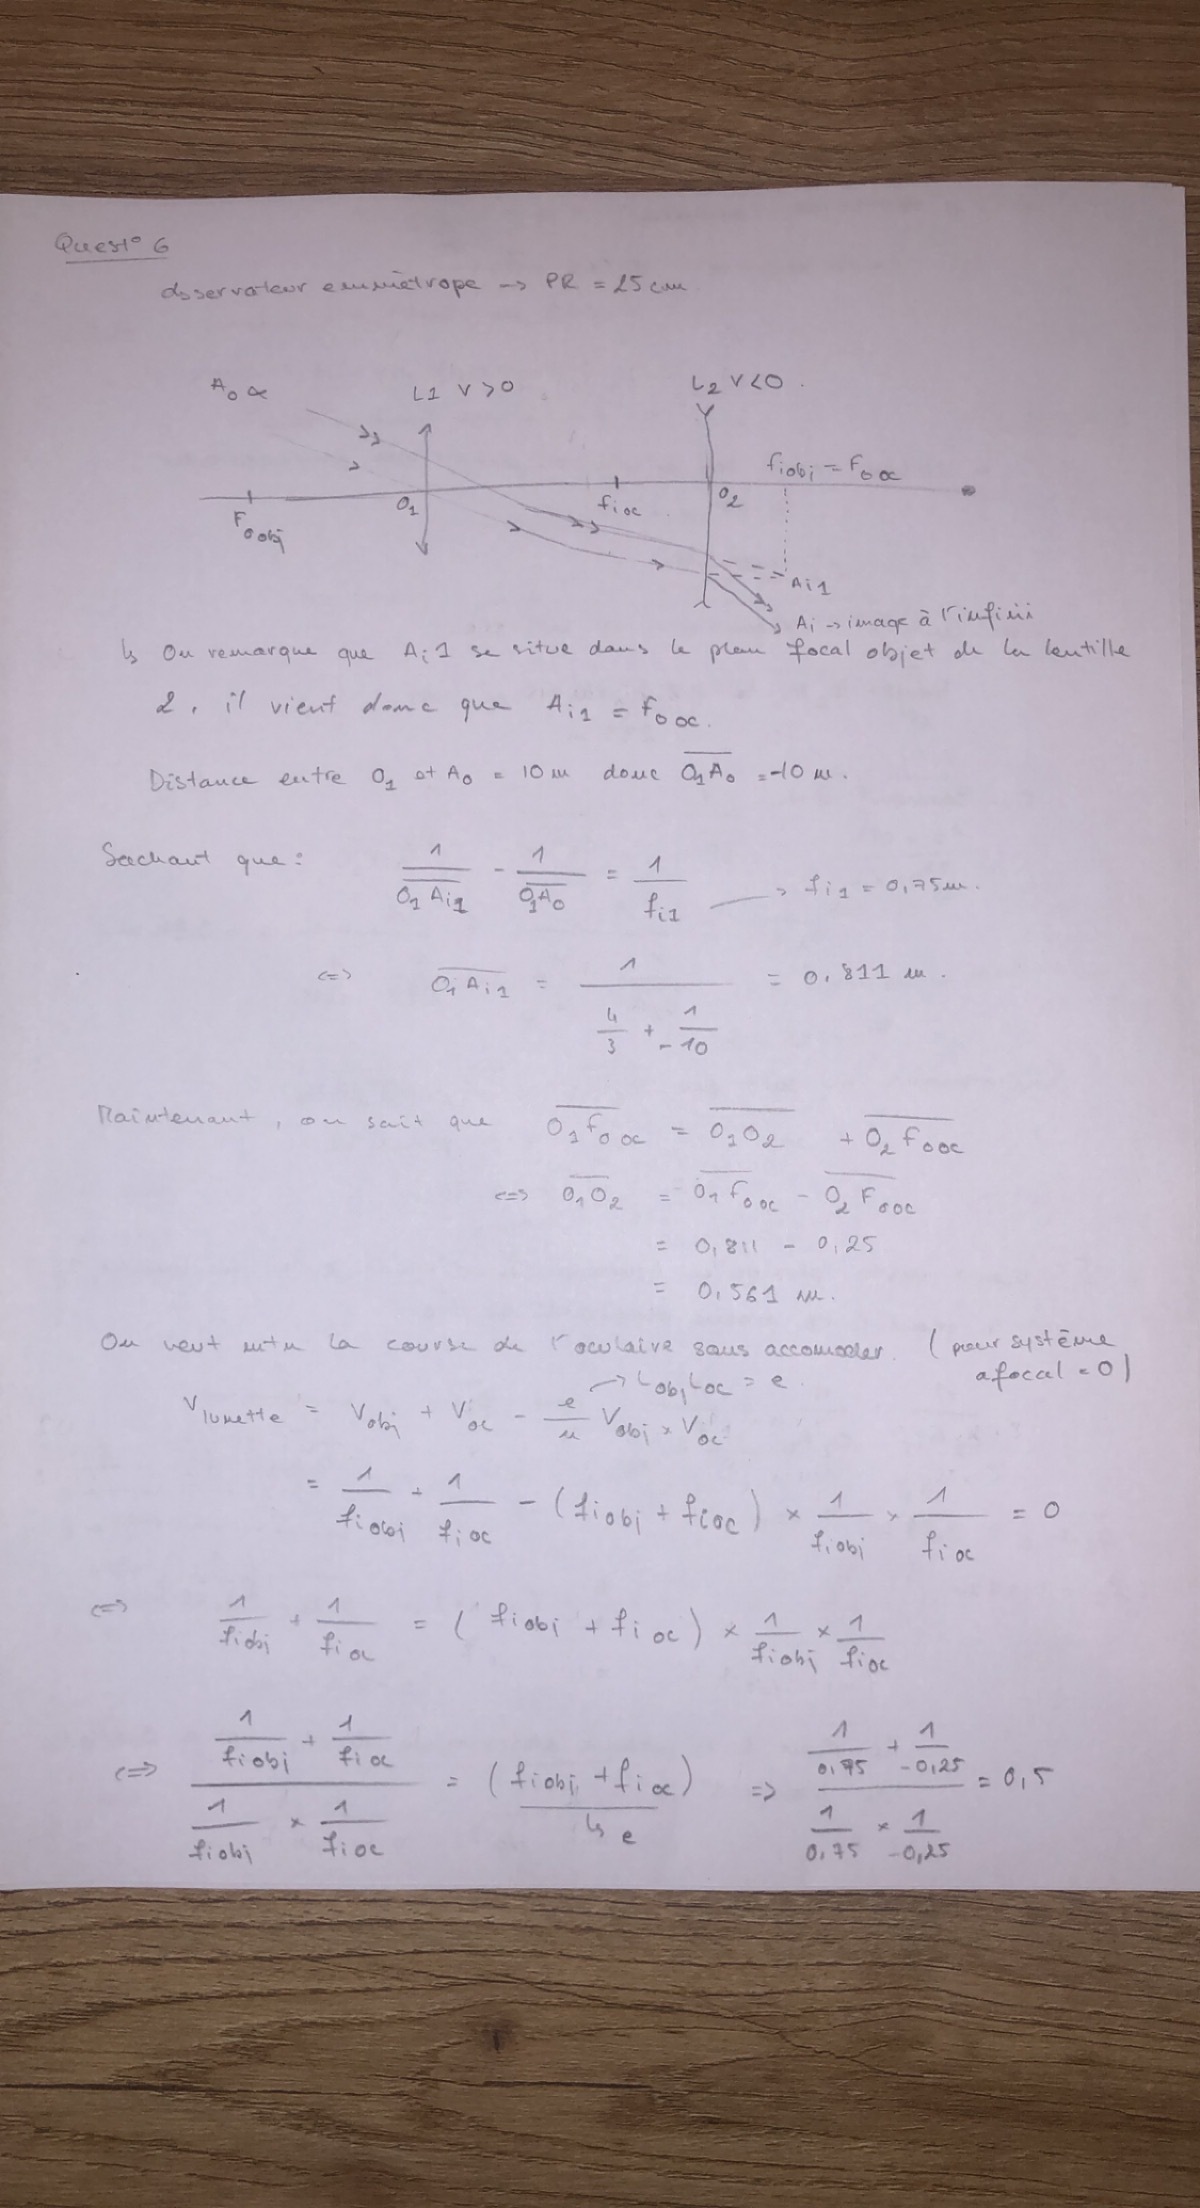 Quest° 6
observateur emmétrope → PR = 25 cm
A₀ ∝ L1 V > 0 L₂ V < 0.
fiobj = F₀ oc
O₁ fi oc O₂
F₀ obj
Ai1
Ai → image à l'infini
↳ On remarque que Ai1 se situe dans le plan focal objet de la lentille
2, il vient donc que Ai1 = F₀ oc.
Distance entre O₁ et A₀ = 10 m donc O̅₁A̅₀ = -10 m.
Sachant que : 1/O̅₁A̅i1 - 1/O̅₁A̅₀ = 1/fi1 → fi1 = 0,75 m.
<=> O̅₁A̅i1 = 1/(4/3 + 1/-10) = 0,811 m.
Maintenant, on sait que O̅₁F̅₀oc = O̅₁O̅₂ + O̅₂F̅₀oc
<=> O̅₁O̅₂ = O̅₁F̅₀oc - O̅₂F̅₀oc
= 0,811 - 0,25
= 0,561 m.
On veut la course de l'oculaire sans accomoder. (pour système
afocal = 0)
→ Lobj Loc = e.
Vlunette = Vobj + Voc - e/n Vobj × Voc
= 1/fiobj + 1/fioc - (fiobj + fioc) × 1/fiobj × 1/fioc = 0
<=> 1/fiobj + 1/fioc = (fiobj + fioc) × 1/fiobj × 1/fioc
<=> (1/fiobj + 1/fioc)/(1/fiobj × 1/fioc) = (fiobj + fioc) => (1/0,75 + 1/-0,25)/(1/0,75 × 1/-0,25) = 0,5
↳ e